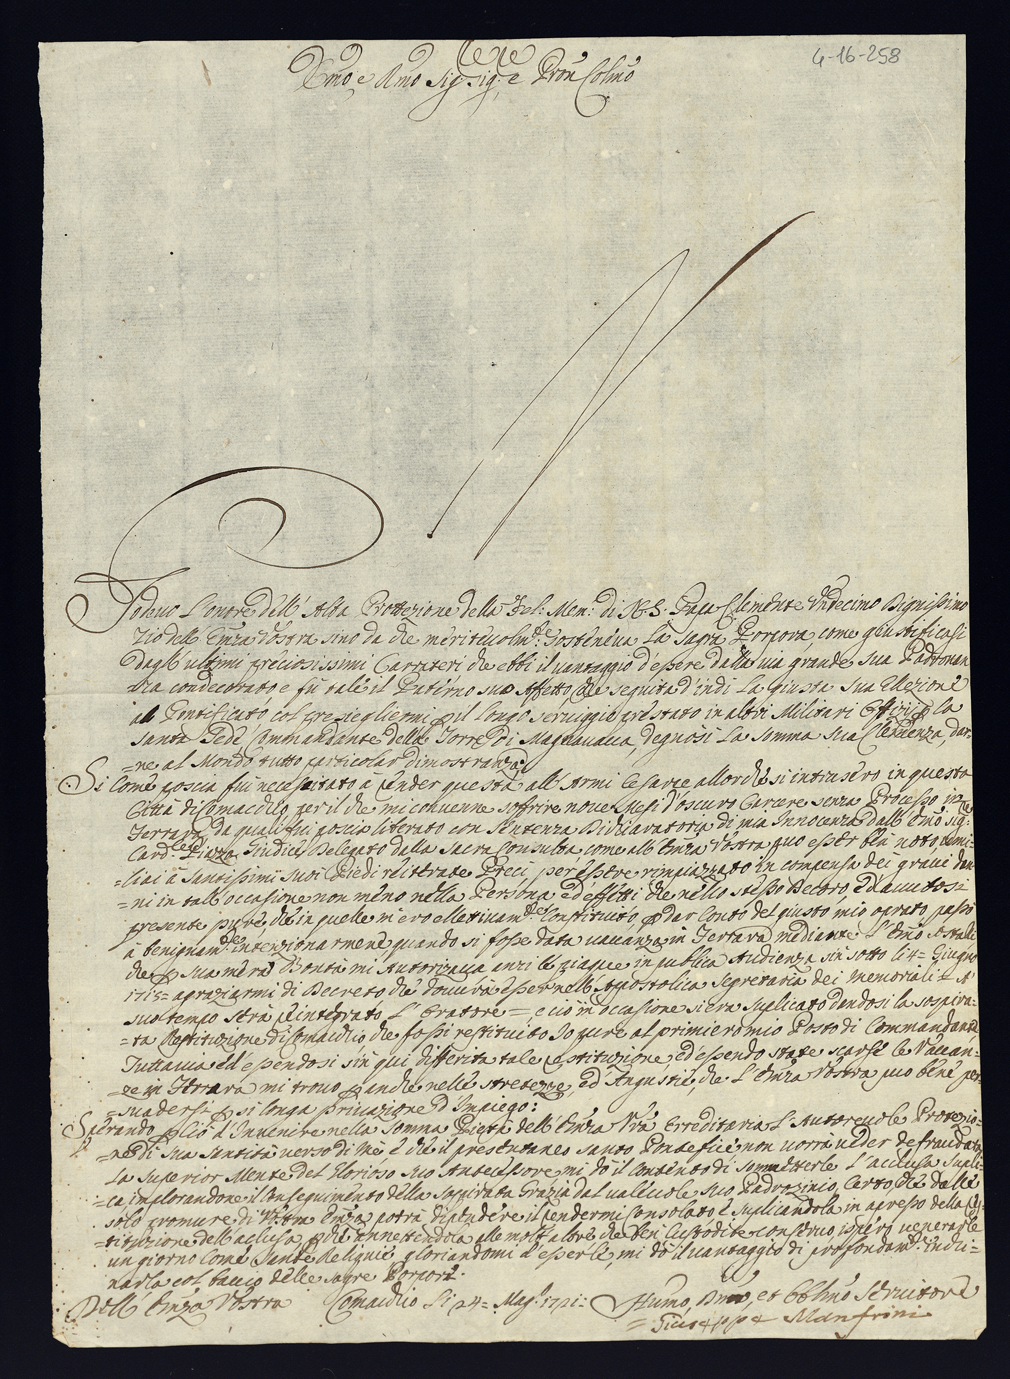 4-16-258
Emo e Rmo Sig. Sig. e Pron Colmo
Godeuo L'onore dell'Alta Prottezione della Fel: Mem: di N.S. Papa Clemente Undecimo Dignissimo
Zio dell'Emza Vostra sino da che meriteuolmte sosteneua La Sagra Porpora, come giustificasi
dagl'ultimi preciosissimi Carrateri che ebbi il uantaggio d'essere dalla uia grande sua Padronan
za condecorato e fù tale il Paterno suo Affetto, che seguita d'indi La giusta sua Elezione
al Pontificato col presiegliermi p il longo seruiggio prestato in altri Militari Offizij p la
Santa Sede Commandante della Torre di Magnauacca, degnosi La somma sua Clemenza, dar-
=ne al Mondo tutto particolar dimostranza:
Si Come poscia fui necessitato à render questa all'Armi Cesaree allorche si intrusero in questa
Città di Comacchio, per il che mi conuenne soffrire noue Mesi d'oscuro Carcere senza Processo in
Ferrara, da quali fui poscia liberato con Sentenza Dichiaratoria di mia Innocenza dall'Emo Sig.
Card.le Piazza Giudice Delegato dalla Sacra Consulta come all'Emza Vostra può esser ben noto, umi-
=liai à Santissimi suoi Piedi reittrate Preci per essere rimpiazzato in compensa dei graui dan
=ni in tall'occasione non meno nella Persona, ed effetti che nello stesso Decoro, ed auutosi
presente pure, che in quelle m'ero ellettiuam.te Constituito p dar Conto del giusto mio oprato, passò
à benignam.te Intenzionarmene quando si fosse data uacanza in Ferrara mediante L'Emo Astalli
che p sua mera Bontà mi Autorizaua anzi le piaque in publica Audienza sin sotto li 4= Giugno
1715= agraziarmi di Decreto che douerà esser nell'Apostolica Segretaria dei Memoriali = A
suo tempo sarà reintegrato L'Oratore = e ciò in ocasione si era suplicato dandosi la sospira=
=ta Restituzione di Comacchio che fossi restituito Io pure al primiero mio Posto di Commandante
Tuttauia ed essendosi sin qui differita tale restituzione, ed essendo state scarse le Vacan=
=ze in Ferrara mi trouo p anche nelle stretezze, ed Angustie, che L'Emza Vostra può bene per=
=suadersi p si longa priuazione d'Impiego:
Sperando p ciò d'Inuenire nella Somma Pietà dell'Emza Vra Erreditaria L'Autoreuole Protezio=
=ne di Sua Santità uerso di mè, e che il presentaneo Santo Pontefice non uorrà ueder defraudata
La Superior Mente del Glorioso suo Antecessore mi dò il Contento di sommetterle L'acclusa Supli=
=ca implorandone il Conseguimento della Sospirata Grazia dal ualeuole suo Padrozinio, Certo, che dalle
solo premure di Vostra Emza potrà dipendere il rendermi Consolato e suplicandola in apresso della Re=
=tituzione dell'acclusa p che annettendola alle molt'altre che ben Custodite conseruo, possa uenerarle
un giorno Come Sante Reliquie, gloriandomi d'esserle, mi dò il uantaggio di profondam.te inchi=
=narla col bacio delle sagre Porpore.
Dell'Emza Vostra Comacchio Li 24= Mag.o 1721= Humo, Dmo, et Obblmo Seruitore
= Giuseppe Manfrini